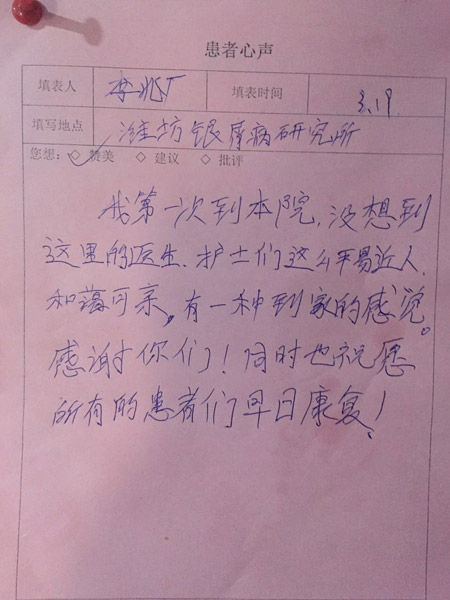 患者心声
填表人 李兆广 填表时间 3.19
填写地点 潍坊银屑病研究所
您想：◇赞美 ◇建议 ◇批评
我第一次到本院，没想到
这里的医生、护士们这么平易近人，
和蔼可亲，有一种到家的感觉。
感谢你们！同时也祝愿
所有的患者们早日康复！